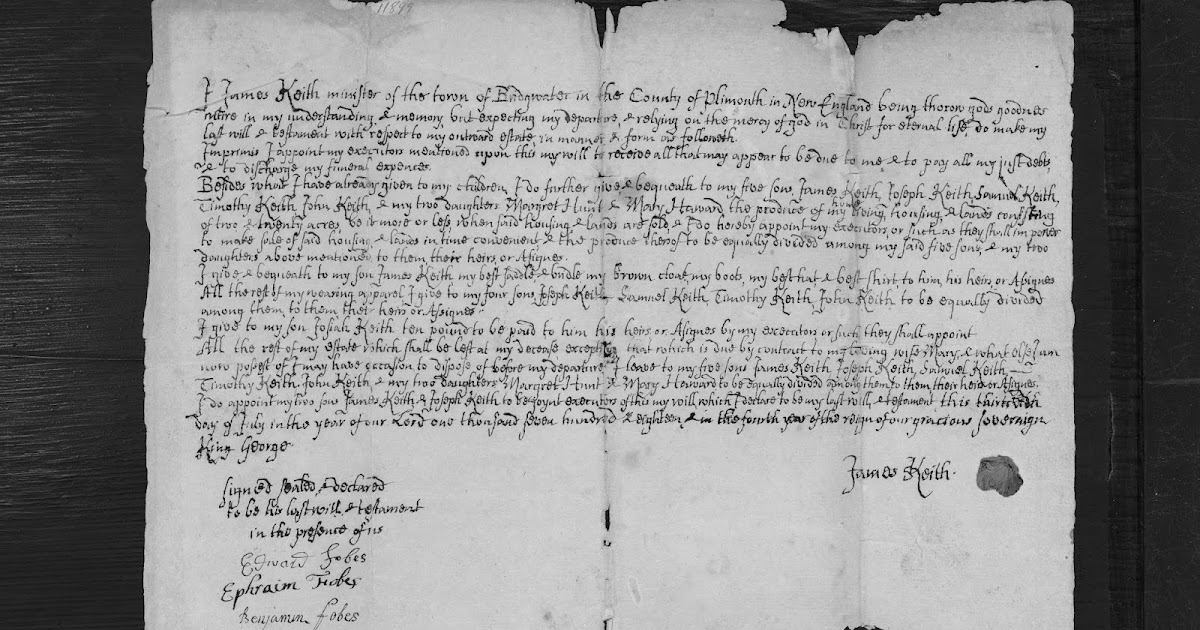 11849
I James Keith minister of the town of Bridgwater in the County of Plimouth in New England being thorow gods goodnes
intire in my understanding & memory but expecting my departure, & relying on the mercy of god in Christ for eternal life, do make my
last will & testament with respect to my outward estate, in manner & form as followeth.
Imprimis I appoint my executors mentioned upon this my will to receive all that may appear to be due to me & to pay all my just debts,
& to discharge my funeral expences.
Besides what I have already given to my children, I do further give & bequeath to my five sons, James Keith, Joseph Keith, Samuel Keith,
Timothy Keith, John Keith, & my two daughters Margret Hunt & Mary Haward, the produce of my home living, housing, & lands consisting
of two & twenty acres, be it more or less, when said housing & lands are sold, & I do hereby appoint my executors, or such as they shall impower
to make sale of said housing & lands in time convenient & the produce therof to be equally divided among my said five sons, & my two
daughters above mentioned to them their heirs, or Asignes.
I give & bequeath to my son James Keith my best saddle & bridle my brown cloak, my boots, my best hat & best shirt to him, his heirs, or Asignes
All the rest of my wearing apparel I give to my four sons, Joseph Keith Samuel Keith, Timothy Keith, John Keith to be equally divided
among them to them their heirs or Asignes
I give to my son Josiah Keith ten pound to be paid to him his heirs, or Asignes by my executors or such they shall appoint
All the rest of my estate which shall be left at my decease excepting that which is due by contract to my loving wife Mary, & what else I am
now posest of I may have occasion to dispose of before my departure, I leave to my five sons James Keith, Joseph Keith, Samuel Keith,
Timothy Keith, John Keith, & my two daughters Margret Hunt & Mary Haward to be equally divided among them to them their heirs or Asignes,
I do appoint my two sons James Keith & Joseph Keith to be joynt executors of this my will, which I declare to be my last will, & testament this thirteenth
day of July in the year of our Lord one thousand seven hundred & eighteen, & in the fourth year of the reign of our gracious sovereign
King George
James Keith.
signed sealed, & declared
to be his last will, & testament
in the presence of us
Edward Fobes
Ephraim Fobes
Benjamin Fobes